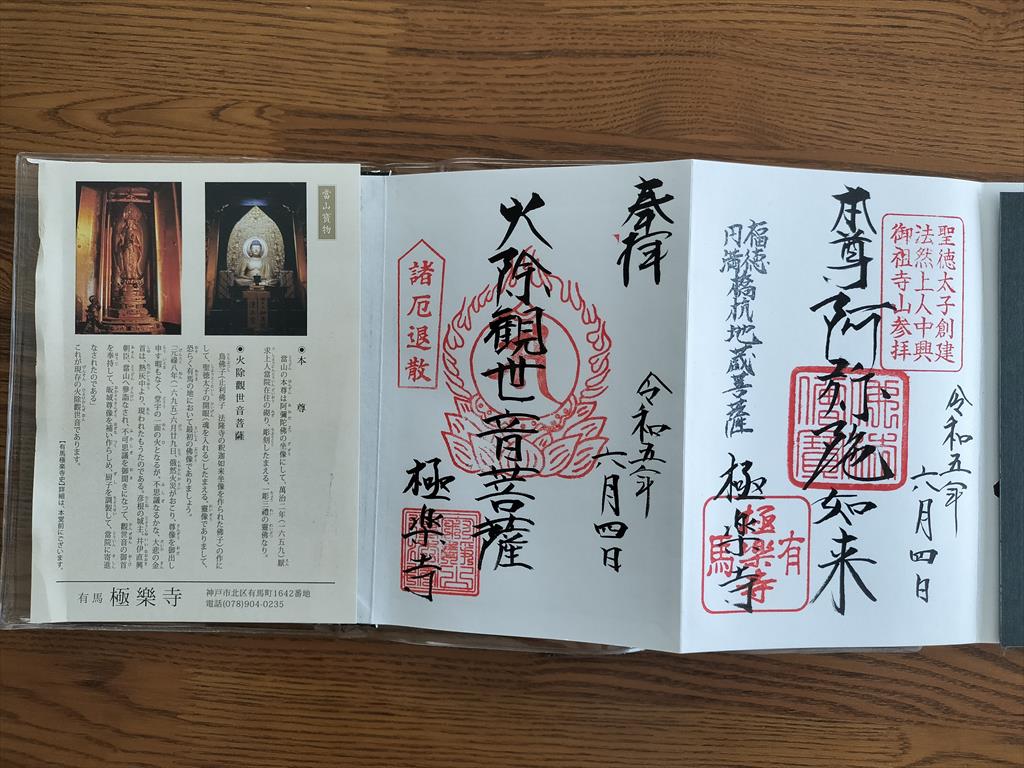 聖徳太子創建
法然上人中興
御祖寺山参拝
令和五年
六月四日
本尊阿弥陀如来
福徳
円満橋杭地蔵菩薩
極楽寺
有馬
極樂寺
奉拝
令和五年
六月四日
火除観世音菩薩
諸厄退散
極楽寺
當山寳物
●本尊
當山の本尊は阿彌陀佛の坐像にして、萬治二年(一六五九)厭
求上人當院在住の砌り、彫刻したまえる。一彫三禮の靈佛なり。
●火除觀世音菩薩
鳥佛子(止利佛子 法隆寺の釈迦如来坐像を作られた佛子)の作に
して、聖徳太子の開眼(魂を入れる)したまえる。靈像でありまして、
恐らく有馬の地において最初の佛像でありましよう。
「元禄八年(一六九五)六月廿九日、俄然火災がおこり、尊像を御出し
申す暇もなく、堂宇の一面の火となるが、不思議なるかな、大悲の金
首は、熱灰中より、現われたもうたのである。彦根の城主、井伊直興
朝臣、當山へ参詣なされ、不可思議を御聞きになって、觀世音の御首
を奉持して、帰城尊像を補い作らしめ、厨子を調製して、當院に寄進
なされたのである」
これが現存の火除觀世音であります。
【有馬極楽寺史】詳細は、本堂前にございます。
有馬 極樂寺
神戸市北区有馬町1642番地
電話(078)904-0235